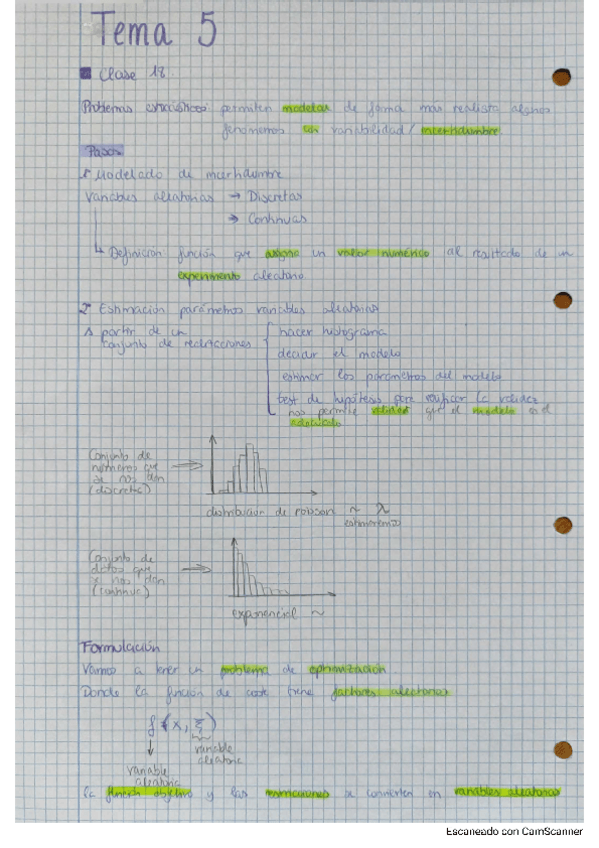 Tema 5
Clase 18
Problemas estocásticos permiten modelar de forma mas realista algunos
fenomenos con variabilidad / incertidumbre
Pasos
1º Modelado de incertidumbre
Variables aleatorias → Discretas
→ Continuas
Definicion: función que asigna un valor numérico al resultado de un
experimento aleatorio
2º Estimación parámetros variables aleatorias
A partir de un
conjunto de
hacer histograma
decidir el modelo
estimar los parámetros del modelo
test de hipótesis para verificar la validez
nos permite validar que el modelo es el
adecuado
Conjunto de
números que
se nos dan
(discreto)
distribución de poisson ~ λ
estimaremos
Conjunto de
datos que
se nos dan
(continuo)
exponencial ~
Formulación
Vamos a tener un problema de optimización
Donde la función de coste tiene factores aleatorios
f(x, ξ)
variable
aleatoria
variable
aleatoria
la función objetivo y las restricciones se convierten en variables aleatorias
Escaneado con CamScanner